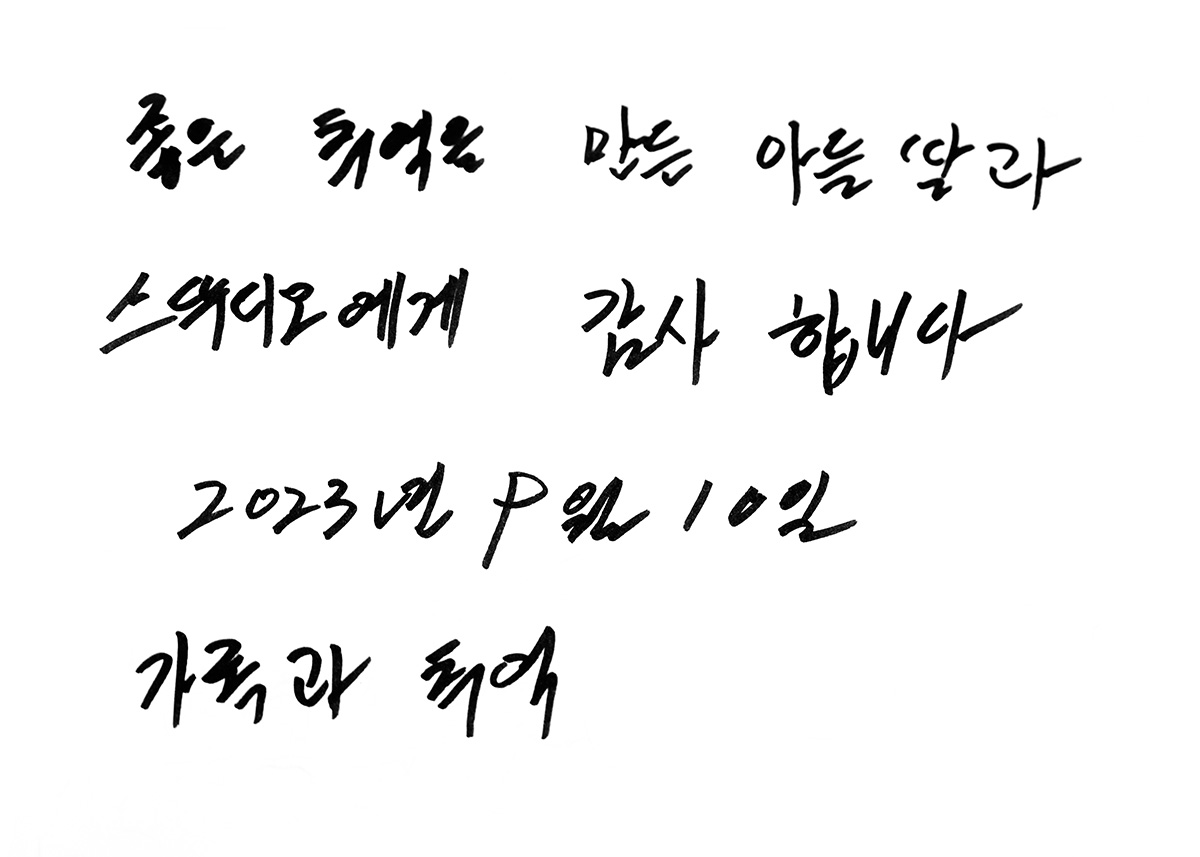 좋은 취억을 만든 아들 딸과
스튜디오에게 감사 합니다
2023년 9월 10일
가족과 취억